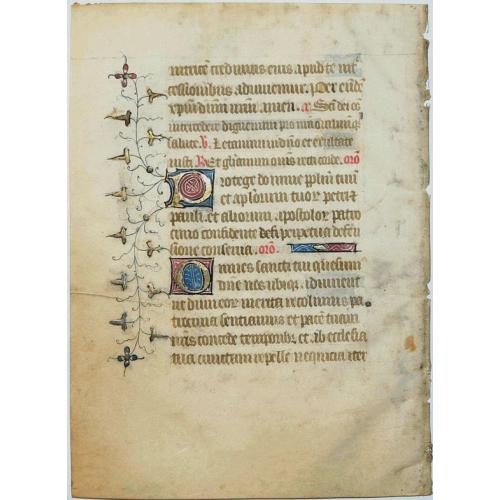 nitricē credimus eius apud te int
cessionibus adiuuemur. Per eūdē
xpm̄ dn̄m nr̄m. amen. a. Sc̄i dei oē
intercedere dignemini pro nr̄a oīmq;
salute. v. Letamini in dn̄o et exultate
iusti. R. Et gl̄iamini oīes recti corde. orō
Protege domine pplm̄ tuū
et apl̄orum tuor petri et
pauli. et aliorum apostolor patro
cinio confidentē defē perpetua defen
sione conserua. orō.
Omnes sancti tui quesum
dn̄e nos ubiq;. adiuuent
ut dum eor merita recolimus pa
trocinia sentiamus et pacē tuam
nr̄is concede temporibꝫ et ab ecclesia
tua cunctam repelle nequicia iter